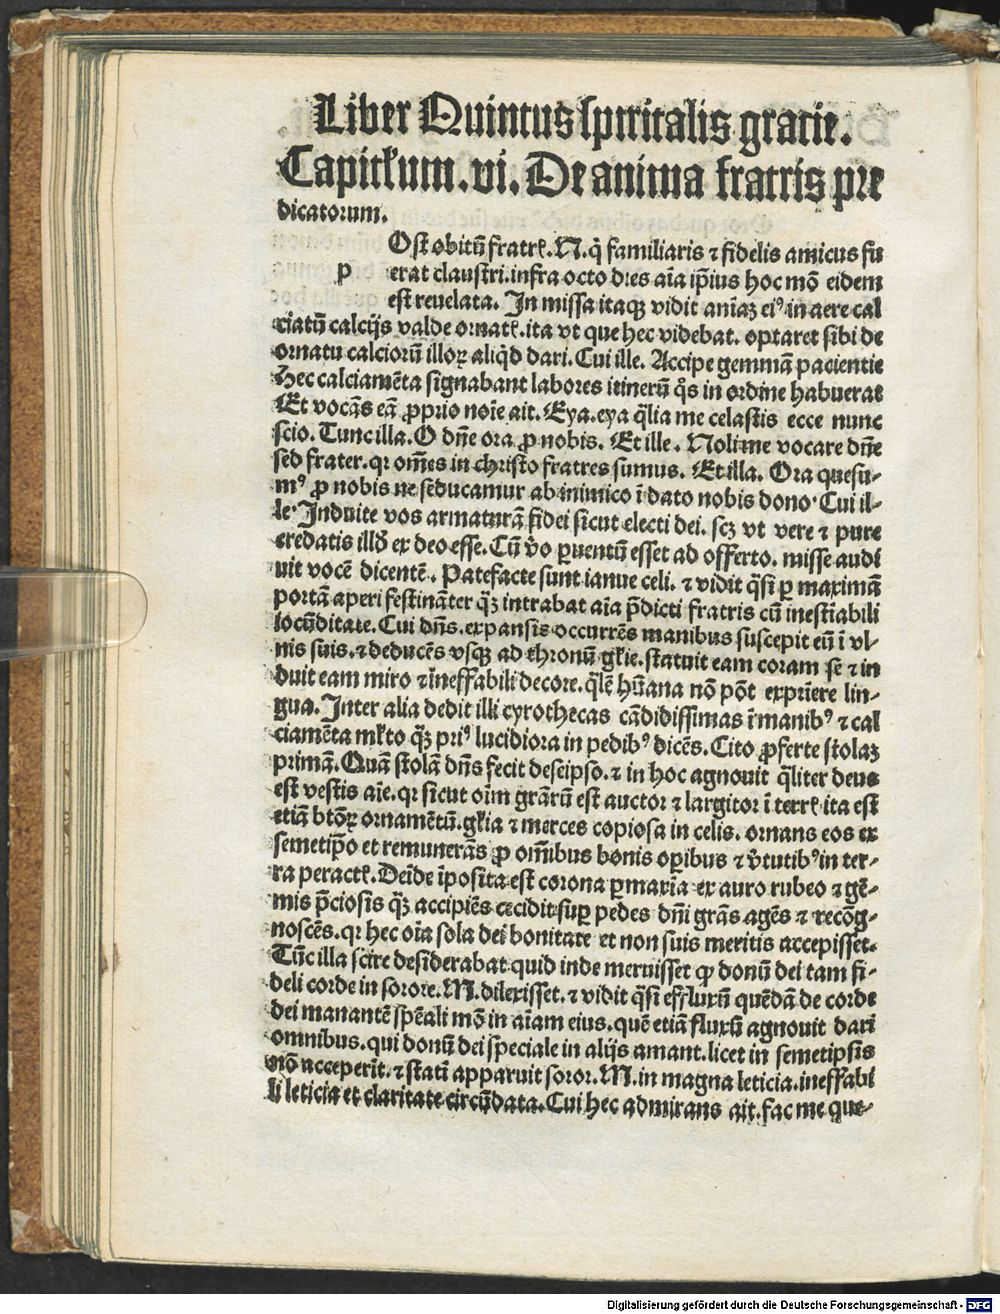 Liber Quintus spiritalis gratie.
Capitłum. vi. De anima fratris pre
dicatorum.
p Ost obitū fratrꝭ. N. q̄ familiaris ⁊ fidelis amicus fu
erat claustri. infra octo dies aīa ip̄ius hoc mō eidem
est reuelata. In missa itaqꝫ vidit aniaꝫ eiꝰ in aere cal
ciatū calcijs valde ornatꝭ. ita vt que hec videbat. optaret sibi de
ornatu calciorū illoꝝ aliqͥd dari. Cui ille. Accipe gemmā pacientie
Hec calciamēta signabant labores itinerū qͦs in ordine habuerat
Et vocās eā ꝓprio noīe ait. Eya. eya qͣlia me celastis ecce nunc
scio. Tunc illa. O dn̄e ora ꝓ nobis. Et ille. Noli me vocare dn̄e
sed frater. qꝛ om̄es in christo fratres sumus. Et illa. Ora quesu-
mꝰ ꝓ nobis ne seducamur ab inimico ī dato nobis dono. Cui il-
le. Induite vos armaturā fidei sicut electi dei. scꝫ vt vere ⁊ pure
credatis illḋ ex deo esse. Cū v̊o ꝑuentū esset ad offerto. misse audi
uit vocē dicentē. Patefacte sunt ianue celi. ⁊ vidit qͣsi ꝑ maximā
portā aperi festināter qͣꝫ intrabat aīa p̄dicti fratris cū inestīabili
iocūditate. Cui dn̄s. expansis occurrēs manibus suscepit eū ī vl-
nis suis. ⁊ deducēs vsqꝫ ad thronū głie. statuit eam coram se ⁊ in
duit eam miro ⁊ ineffabili decore. qͣlē hūana nō pōt exprīere lin-
gua. Inter alia dedit illi cyrothecas cādidissimas ī manibꝰ ⁊ cal
ciamēta młto qͣꝫ priꝰ lucidiora in pedibꝰ dicēs. Cito ꝓferte stolaꝫ
primā. Quā stolā dn̄s fecit de seipso. ⁊ in hoc agnouit qͣliter deus
est vestis aīe. qꝛ sicut oīm gr̄arū est auctor ⁊ largitor ī terrꝭ ita est
etiā btōꝝ ornamētū. głia ⁊ merces copiosa in celis. ornans eos ex
semetip̄o et remunerās ꝓ om̄ibus bonis oꝑibus ⁊ v̊tutibꝰ in ter-
ra peractꝭ. Deīde īposita est corona ꝑmaxīa ex auro rubeo ⁊ gē-
mis p̄ciosis qͣꝫ accipiēs cecidit suꝑ pedes dn̄i gr̄as agēs ⁊ recōg-
noscēs. qꝛ hec oīa sola dei bonitate et non suis meritis accepisset.
Tūc illa scire desiderabat quid inde meruisset ꝙ donū dei tam fi-
deli corde in sorore. M. dilexisset. ⁊ vidit qͣsi effluxū quēdā de corde
dei manantē sp̄eāli mō in aīam eius. quē etiā fluxū agnouit dari
omnibus. qui donū dei speciale in alijs amant. licet in semetipsis
nō acceperīt. ⁊ statī apparuit soror. M. in magna leticia. ineffabi
li leticia et claritate circūdata. Cui hec admirans ait. fac me que-
Digitalisierung gefördert durch die Deutsche Forschungsgemeinschaft - DFG